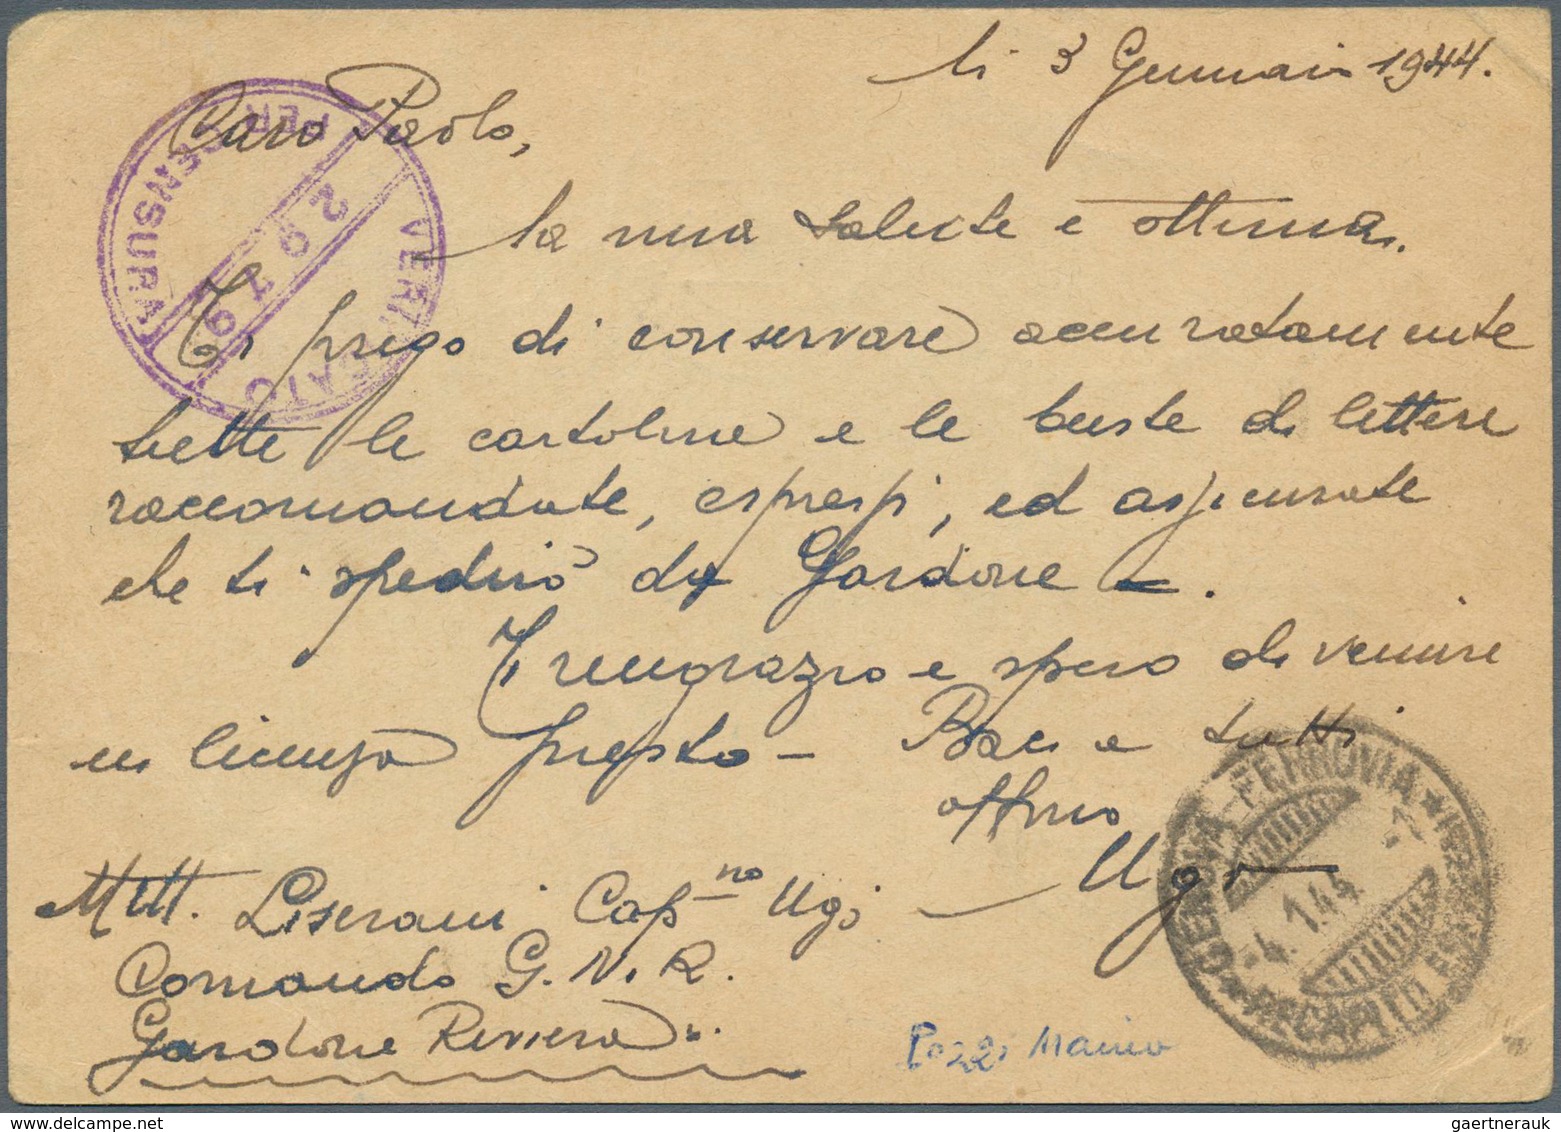 li 3 Gennaio 1944.
Caro Paolo,
la mia salute è ottima.
Ti prego di conservare accuratamente
tutte le cartoline e le buste di lettere
raccomandate, espressi, ed assicurate
che ti spedirò da Gardone.
Ti ringrazio e spero di venire
in licenza presto - Baci a tutti
affmo
Ugo
Mitt. Liserani Cap.no Ugo
Comando G.N.R.
Gardone Riviera
Pozzi Mario
VERIFICATO
PER CENSURA
GENOVA-FERROVIA
-4.1.44
RECAPITO
gaertnerauk / delcampe.net